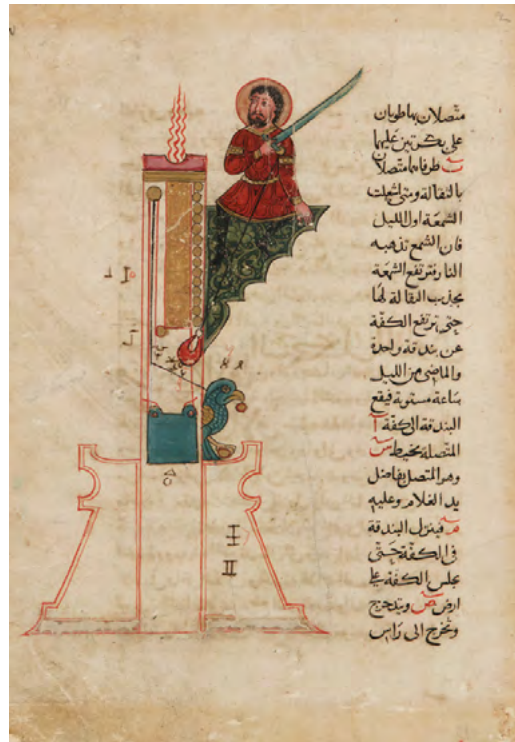 متصلان بهما طويان
على بكرتين عليهما
طرفاهما متصلان
بالثقالة ومتى اشعلت
الشمعة اول الليل
فان الشمع تذهبه
النار فترتفع الشمعة
بجذب الثقالة لها
حتى ترتفع الكفة
عن بندقة واحدة
والماضى من الليل
ساعة مستوية فيقع
البندقة الى الكفة آ
المتصلة بخيط س
وهو المتصل بفاضل
يد الغلام وعليه
فينزل البندقة
فى الكفة حتى
يجلس الكفة على
ارض ص ويتدحرج
وتخرج الى راس